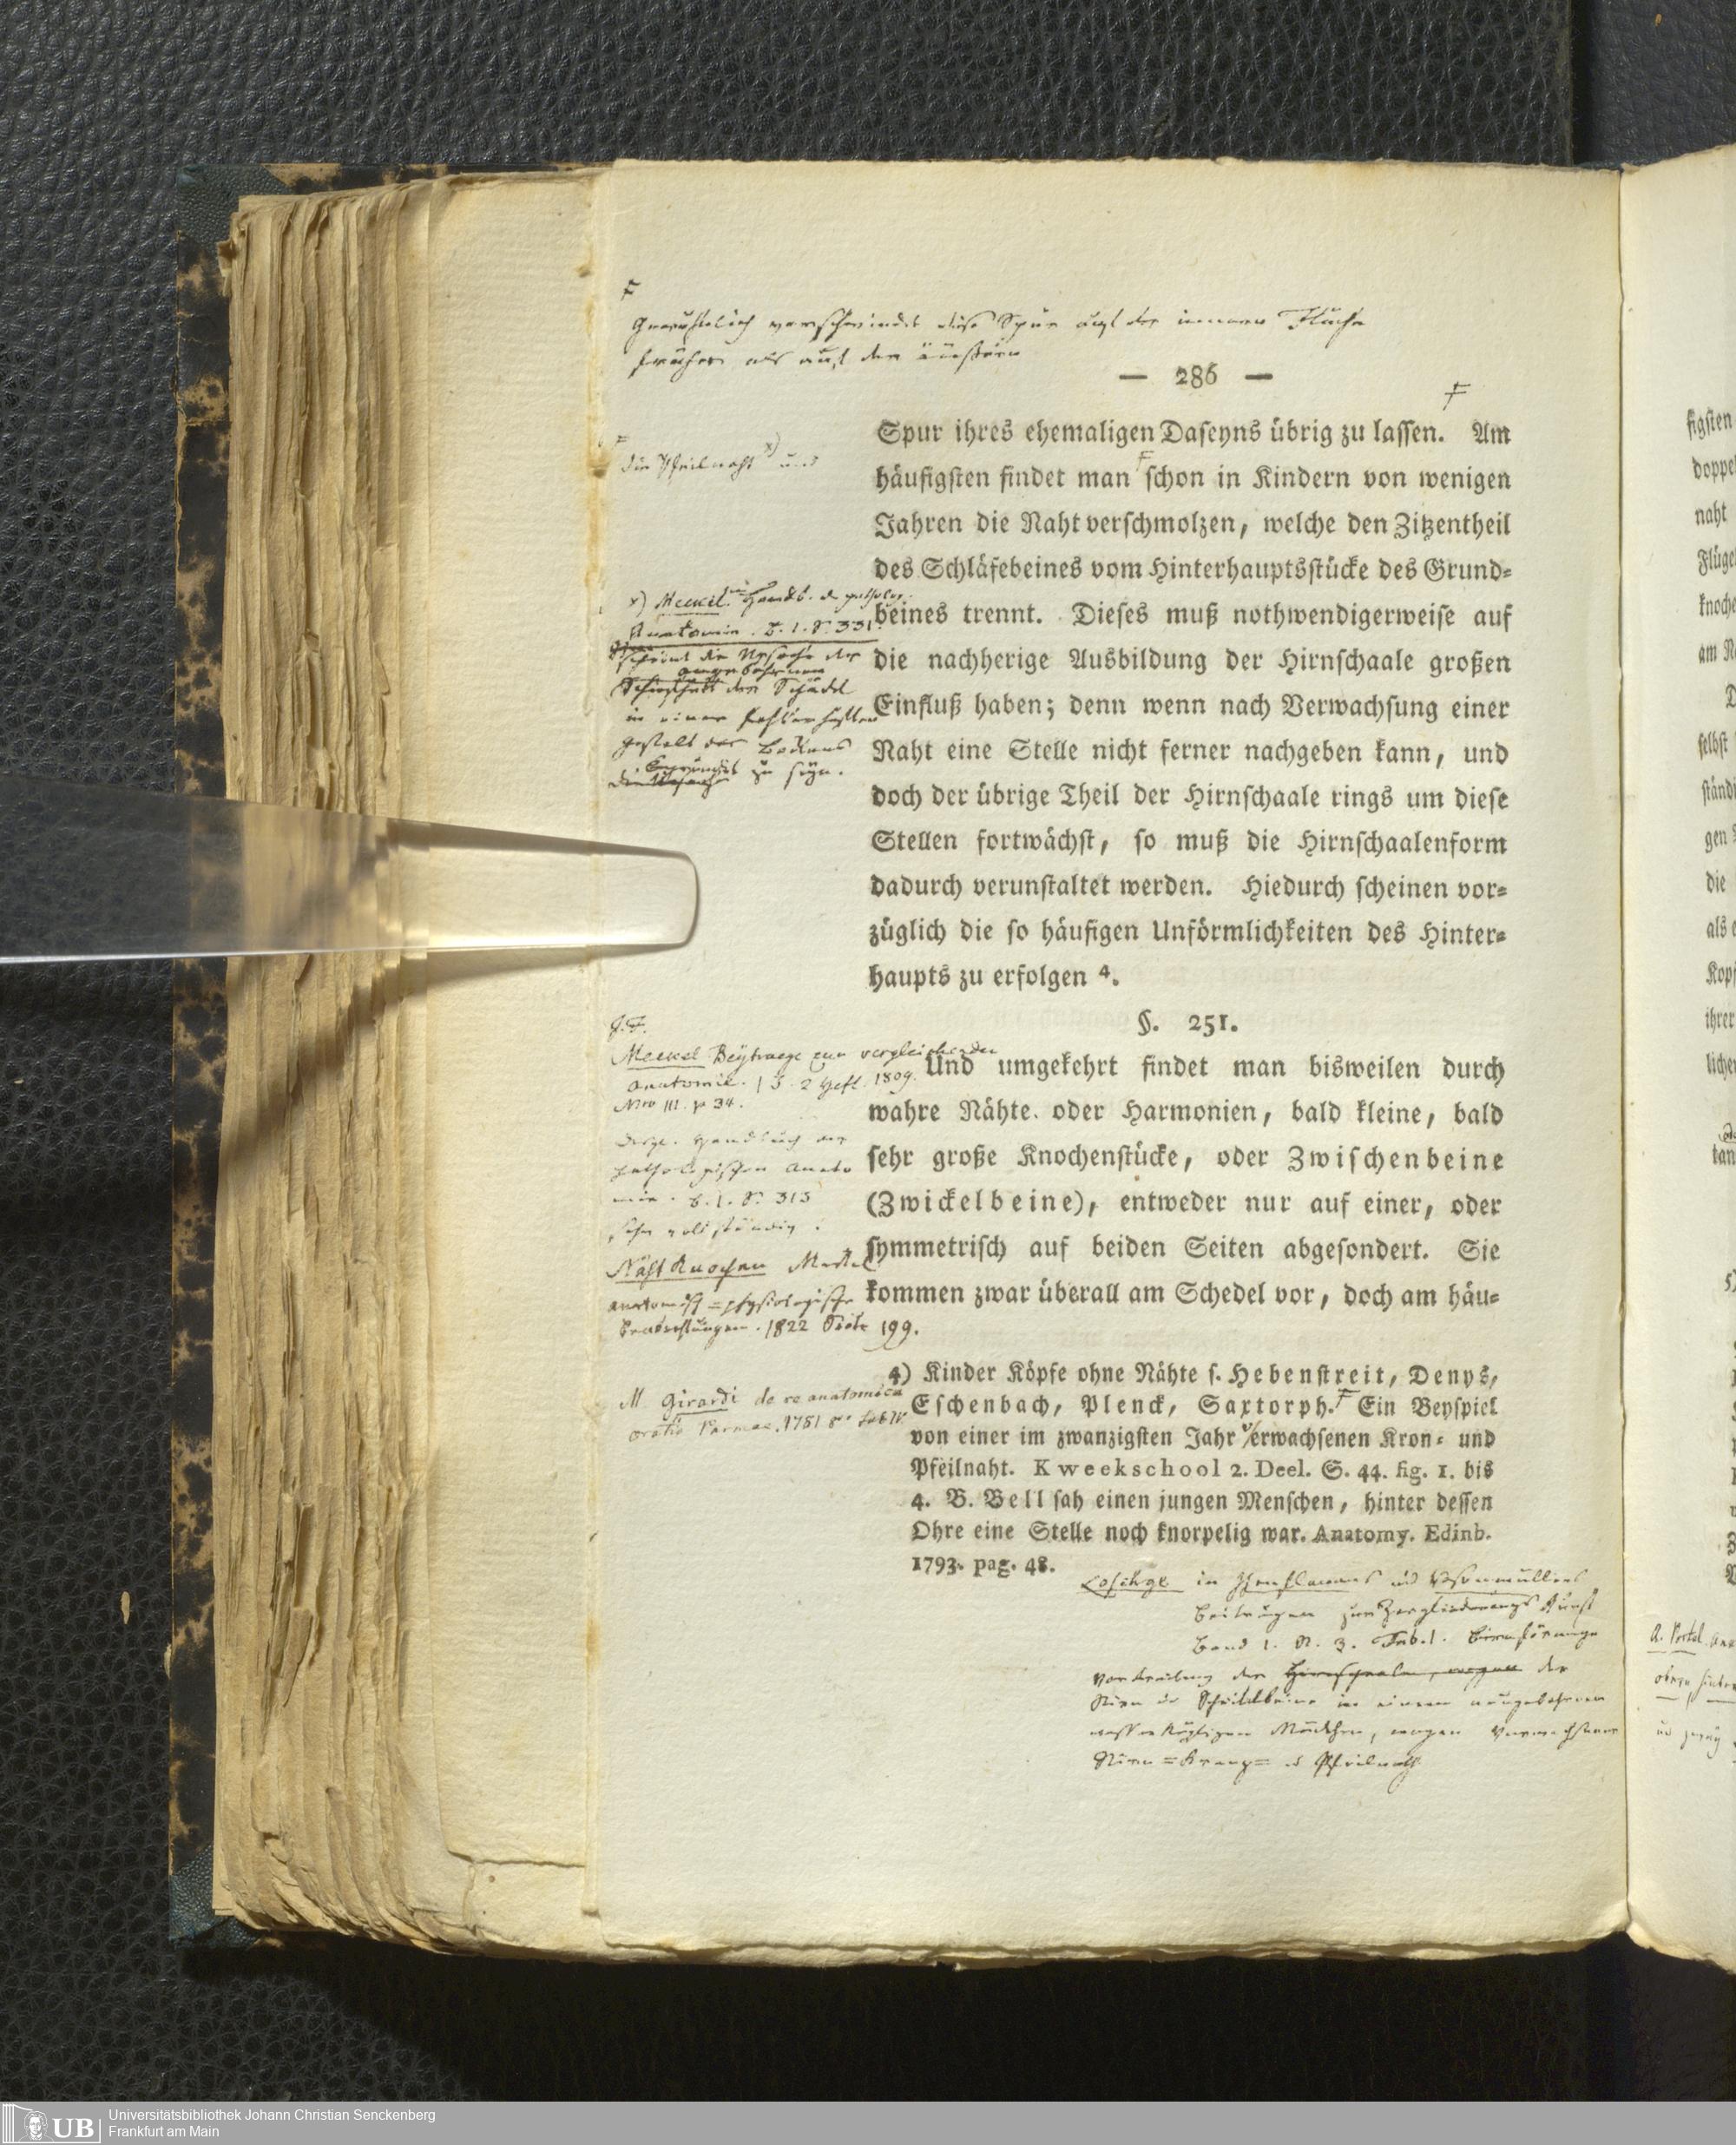 Gewöhnlich verschwindet diese Spur auf der innern Fläche
früher als auf der äußern
— 286 —
Spur ihres ehemaligen Daseyns übrig zu lassen. Am
die Pfeilnaht x) und
häufigsten findet man schon in Kindern von wenigen
Jahren die Naht verschmolzen, welche den Zitzentheil
des Schläfebeines vom Hinterhauptsstücke des Grund-
beines trennt. Dieses muß nothwendigerweise auf
die nachherige Ausbildung der Hirnschaale großen
Einfluß haben; denn wenn nach Verwachsung einer
Naht eine Stelle nicht ferner nachgeben kann, und
doch der übrige Theil der Hirnschaale rings um diese
Stellen fortwächst, so muß die Hirnschaalenform
dadurch verunstaltet werden. Hiedurch scheinen vor-
züglich die so häufigen Unförmlichkeiten des Hinter-
haupts zu erfolgen 4.
x) Meckel Handb. d. patholog.
Anatomie. B. 1. S. 331
scheint die Ursache der
angebohrnen
der Schädel
in einer fehlerhaften
Gestalt des Beckens
zu seyn.
§. 251.
Und umgekehrt findet man bisweilen durch
wahre Nähte oder Harmonien, bald kleine, bald
sehr große Knochenstücke, oder Zwischenbeine
(Zwickelbeine), entweder nur auf einer, oder
symmetrisch auf beiden Seiten abgesondert. Sie
kommen zwar überall am Schedel vor, doch am häu-
J. F.
Meckel Beytraege zur vergleichenden
Anatomie. 1 B. 2 Heft. 1809.
Nro III. p 34.
Handbuch der
pathologischen Anato
mie. B. 1. S. 313
sehr vollständig.
Nahtknochen Meckel
anatomisch=physiologische
Beobachtungen. 1822 Seite 199.
M. Girardi de re anatomica
oratio Parmae. 1781 8°
4) Kinder Köpfe ohne Nähte s. Hebenstreit, Denys,
Eschenbach, Plenck, Saxtorph. Ein Beyspiel
von einer im zwanzigsten Jahr verwachsenen Kron- und
Pfeilnaht. Kweekschool 2. Deel. S. 44. fig. 1. bis
4. B. Bell sah einen jungen Menschen, hinter dessen
Ohre eine Stelle noch knorpelig war. Anatomy. Edinb.
1793. pag. 48.
Loschge in Isenflamms und Rosenmüllers
Beiträgen zur Zergliederungs Kunst
Band 1. N. 3. Tab. 1.
der Hirnschaale, wegen der
Stirn u Scheitelbeine in einem neugebohrnen
Mädchen, wegen verwachsener
Stirn=Kranz= u Pfeilnath
figsten
doppel
naht
Flüge
knoche
am N
selbst
ständi
gen
die
als e
Kopf
ihrer
liche
A. Portal
UB
Universitätsbibliothek Johann Christian Senckenberg
Frankfurt am Main